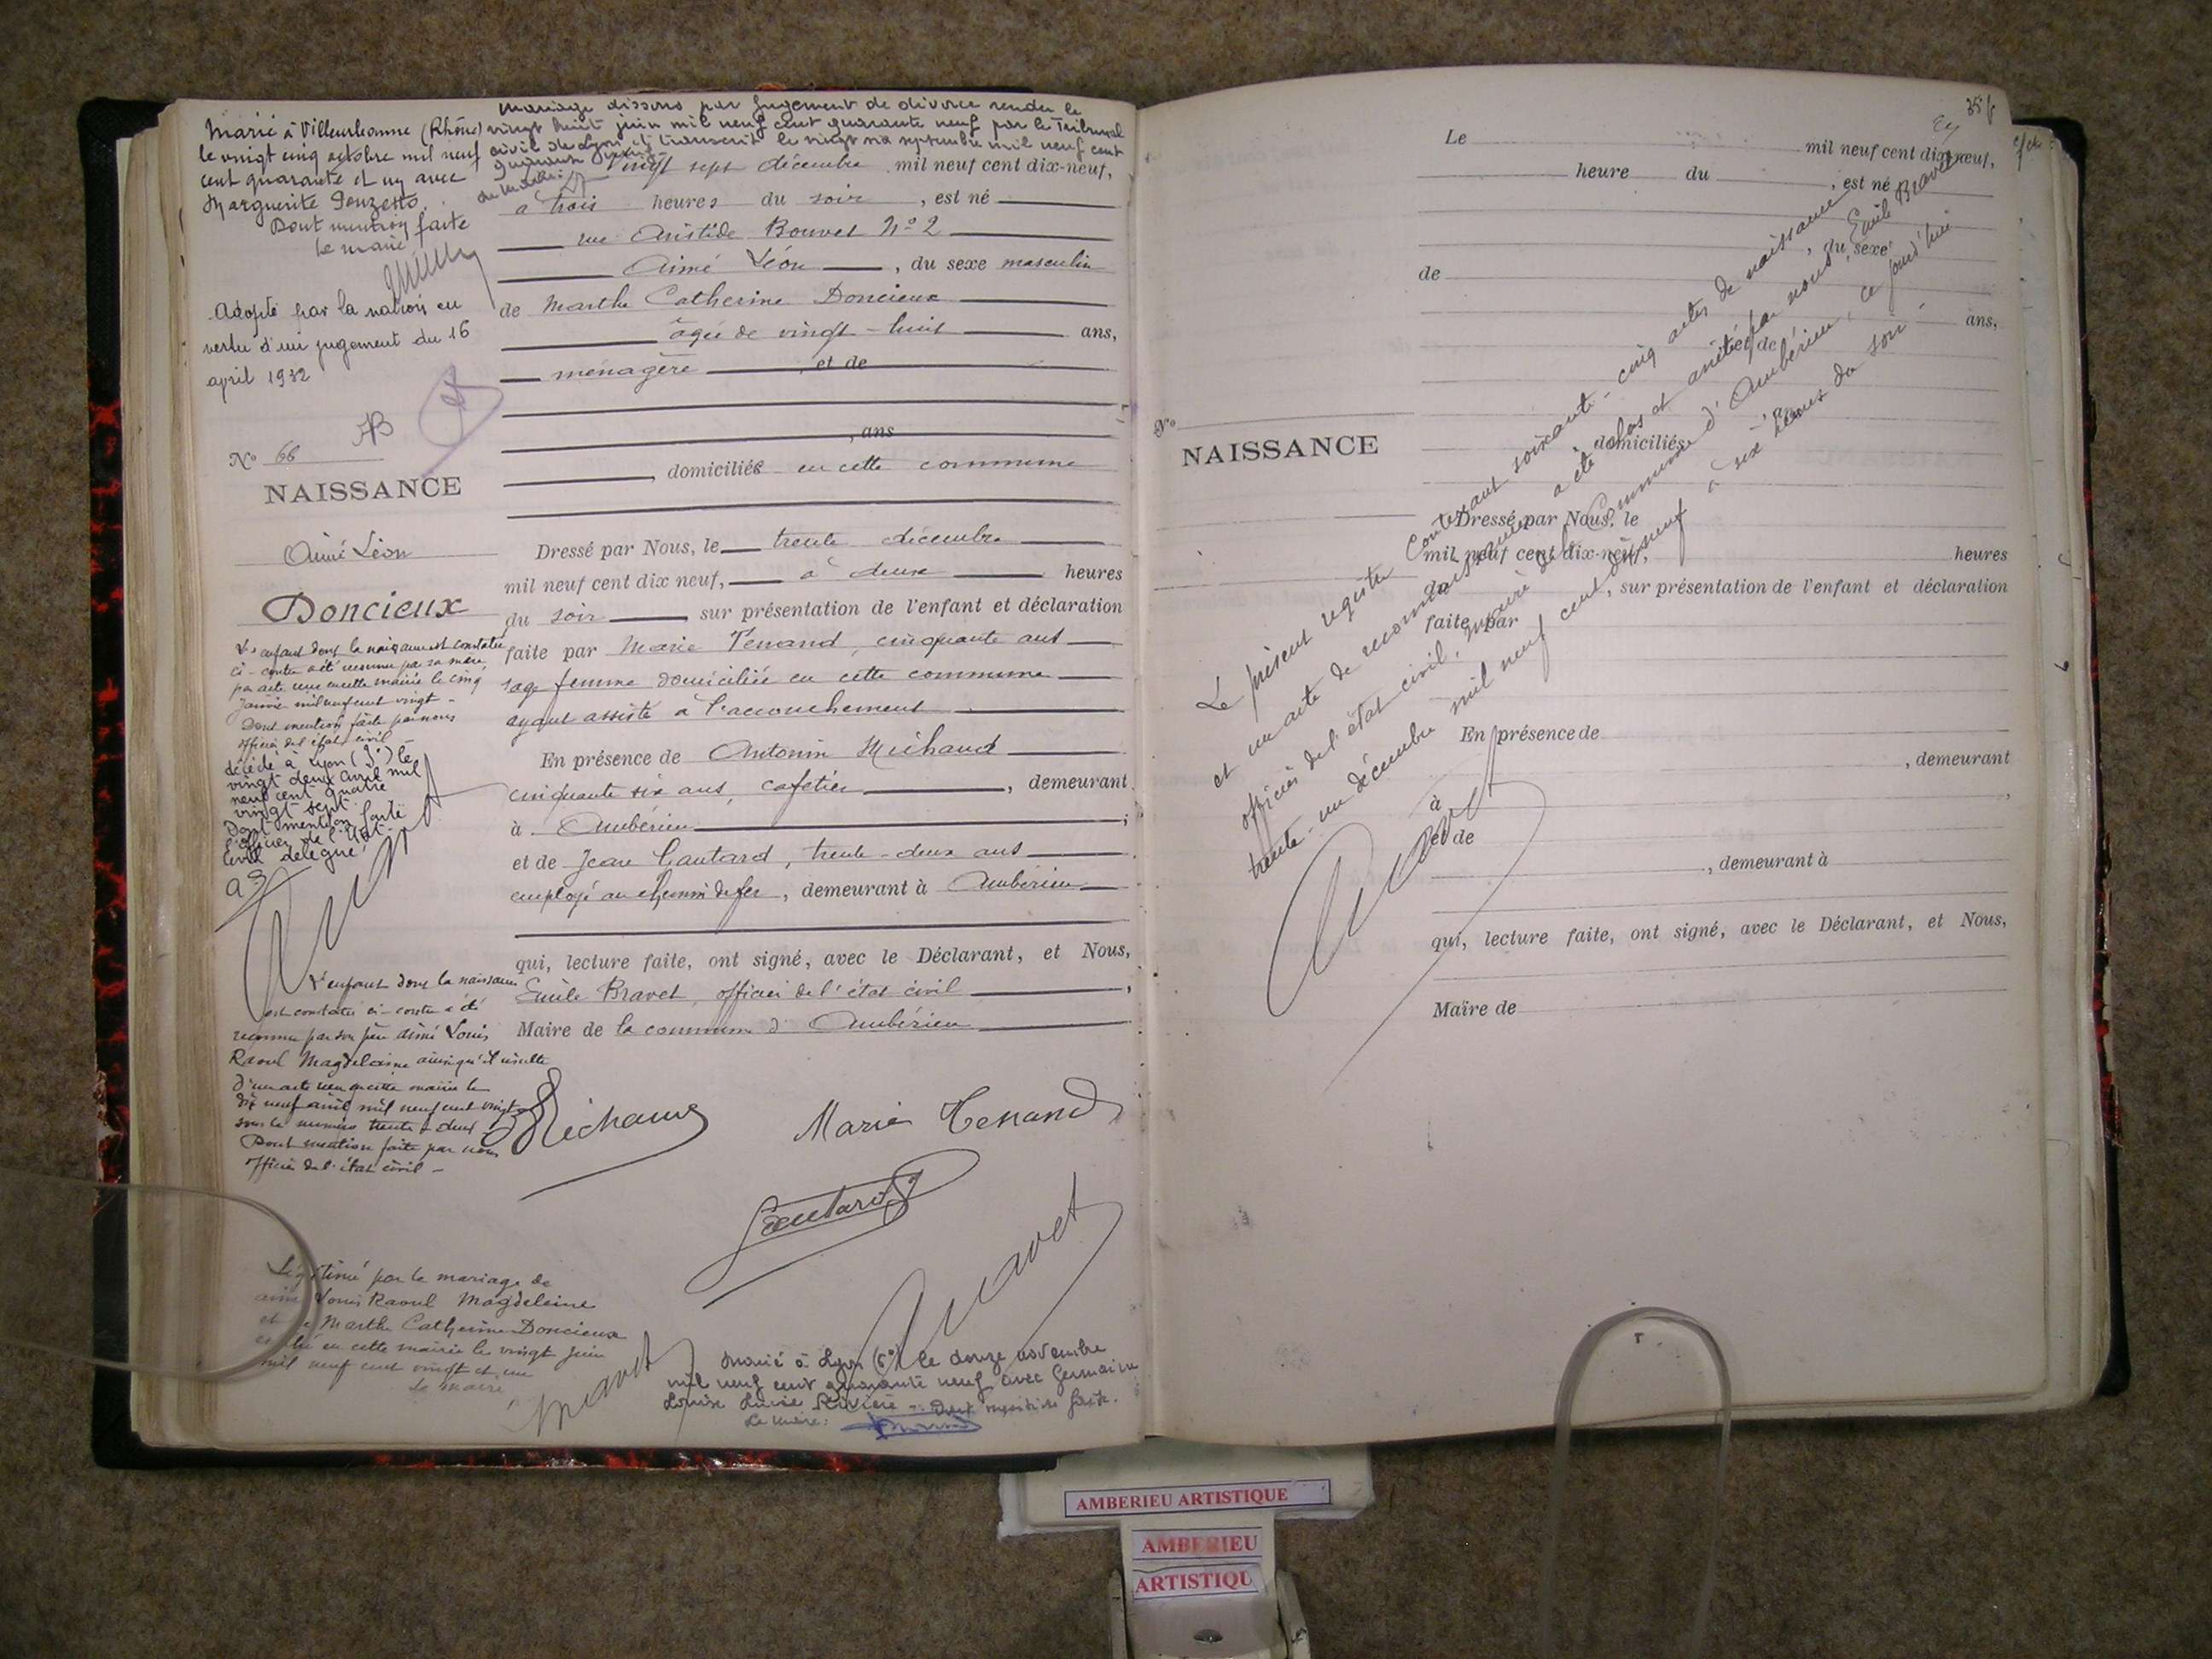 Marié à Villeurbanne (Rhône)
le vingt cinq octobre mil neuf
cent quarante et un avec
Marguerite
Dont mention faite
le maire
Adopté par la nation en
vertu d'un jugement du 16
april 1932
AB
N° 66
NAISSANCE
Aimé Léon
Doncieux
L'enfant dont la naissance est constatée
ci-contre a été reconnu par sa mère,
par acte reçu en cette mairie le cinq
janvier mil neuf cent vingt -
Dont mention faite par nous
officier de l'état civil
décédé à Lyon (3e) le
vingt deux avril mil
neuf cent quatre
vingt sept.
Dont mention faite
l'officier de l'état
civil délégué
L'enfant dont la naissance
est constatée ci-contre a été
reconnu par son père Aimé Louis
Raoul Magdelaine ainsi qu'il résulte
d'un acte reçu en cette mairie le
dix neuf avril mil neuf cent vingt
sous le numéro trente-deux
Dont mention faite par nous
officier de l'état civil -
Légitimé par le mariage de
Aimé Louis Raoul Magdeleine
et de Marthe Catherine Doncieux
célébré en cette mairie le vingt juin
mil neuf cent vingt et un
Le maire
Bravet
mariage dissous par jugement de divorce rendu le
vingt huit juin mil neuf cent quarante neuf par le Tribunal
civil de Lyon et transcrit le vingt six septembre mil neuf cent
quarante
Vingt sept décembre mil neuf cent dix-neuf,
à trois heures du soir, est né
rue Aristide Bouvet N° 2
Aimé Léon, du sexe masculin
de Marthe Catherine Doncieux
âgée de vingt-huit ans,
ménagère, et de
, ans
, domiciliée en cette commune
Dressé par Nous, le trente décembre
mil neuf cent dix neuf, à deux heures
du soir sur présentation de l'enfant et déclaration
faite par Marie Tenand, cinquante ans
sage femme domiciliée en cette commune
ayant assisté à l'accouchement
En présence de Antonin Michaud
cinquante six ans, cafetier, demeurant
à Ambérieu;
et de Jean Gautard, trente-deux ans
employé au chemin de fer, demeurant à Ambérieu
qui, lecture faite, ont signé, avec le Déclarant, et Nous,
Emile Bravet, officier de l'état civil,
Maire de la commune d'Ambérieu
Michaud
Marie Tenand
Gautard
Bravet
Marié à Lyon (6e) le douze novembre
mil neuf cent quarante neuf avec Germaine
Louise Rivière - Dont mention faite.
Le maire:
Le mil neuf cent dix-neuf,
heure du, est né
, du sexe
de
ans,
et de
N°
NAISSANCE
domiciliés
Dressé par Nous, le
mil neuf cent dix-neuf, heures
du, sur présentation de l'enfant et déclaration
faite par
En présence de
, demeurant
à,
et de
, demeurant à
qui, lecture faite, ont signé, avec le Déclarant, et Nous,
Maire de
Le présent registre contenant soixante-cinq actes de naissance
et un acte de reconnaissance a été clos et arrêté par nous, Emile Bravet
officier de l'état civil, maire de la Commune d'Ambérieu, ce jourd'hui
trente-un décembre mil neuf cent dix-neuf à six heures du soir -
Bravet
AMBERIEU ARTISTIQUE
AMBERIEU
ARTISTIQU